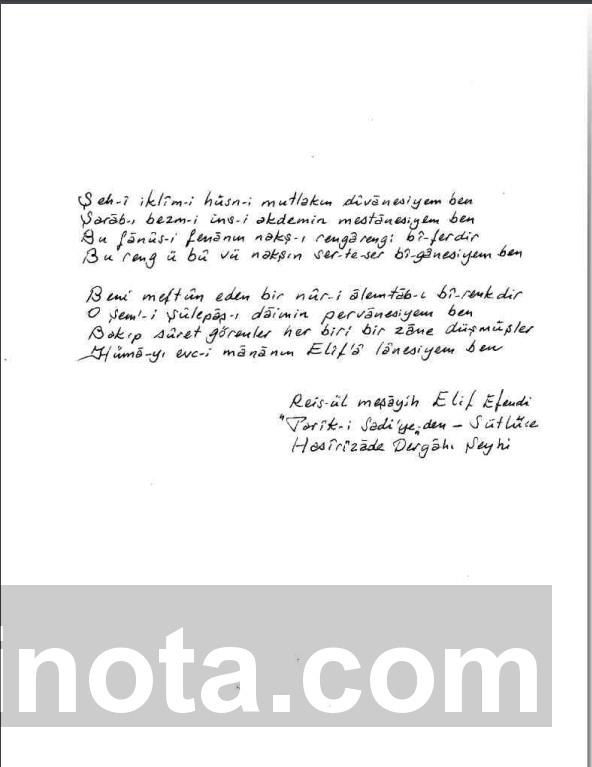 Şeh-î iklîm-i hüsn-i mutlakın dîvânesiyem ben
Şarâb-ı bezm-i ins-i akdemin mestânesiyem ben
Bu fânûs-i fenânın nakş-ı rengârengi bî-ferdir
Bu reng ü bû vü nakşın ser-te-ser bî-gânesiyem ben
Beni meftûn eden bir nûr-i âlemtâb-ı bî-renkdir
O şem'-i şûlepâş-ı dâimin pervânesiyem ben
Bakıp sûret görenler her biri bir zâne düşmüşler
Hümâ-yı evc-i mânânın Elif'â lânesiyem ben
Reis-ül meşâyih Elif Efendi
"Tarîk-i Sadi'ye"den - Sütlüce
Hasîrîzâde Dergâhı Şeyhi
inota.com